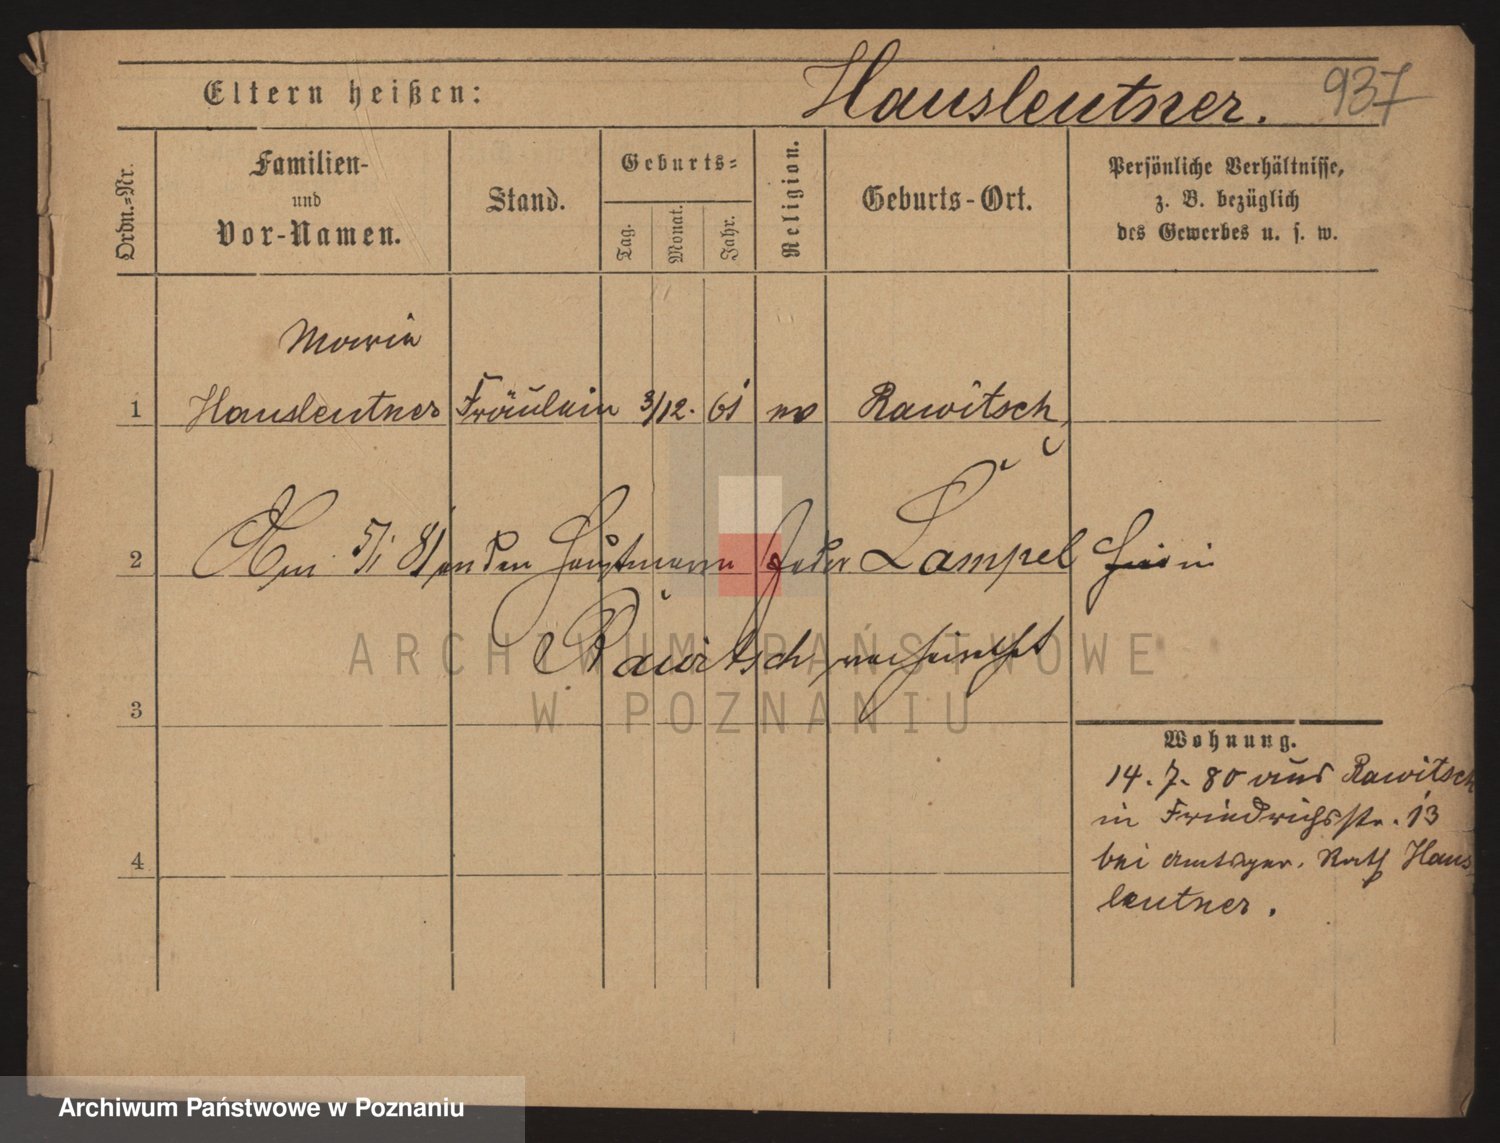 Eltern heißen: Hausleutner. 937
Ordn.=Nr.
Familien-
und
Vor-Namen.
Stand.
Geburts=
Tag.
Monat.
Jahr.
Religion.
Geburts-Ort.
Persönliche Verhältnisse,
z. B. bezüglich
des Gewerbes u. s. w.
Marie
1 Hausleutner Fräulein 3/12. 61 ev Rawitsch
2 Am 5/1 81 an den Hauptmann Lampel
Rawitsch verheirathet
3
Wohnung.
14. 7. 80 aus Rawitsch
in Friedrichsstr. 13
bei Amtsger. Rath Haus
leutner.
4
ARCHIWUM PAŃSTWOWE
W POZNANIU
Archiwum Państwowe w Poznaniu